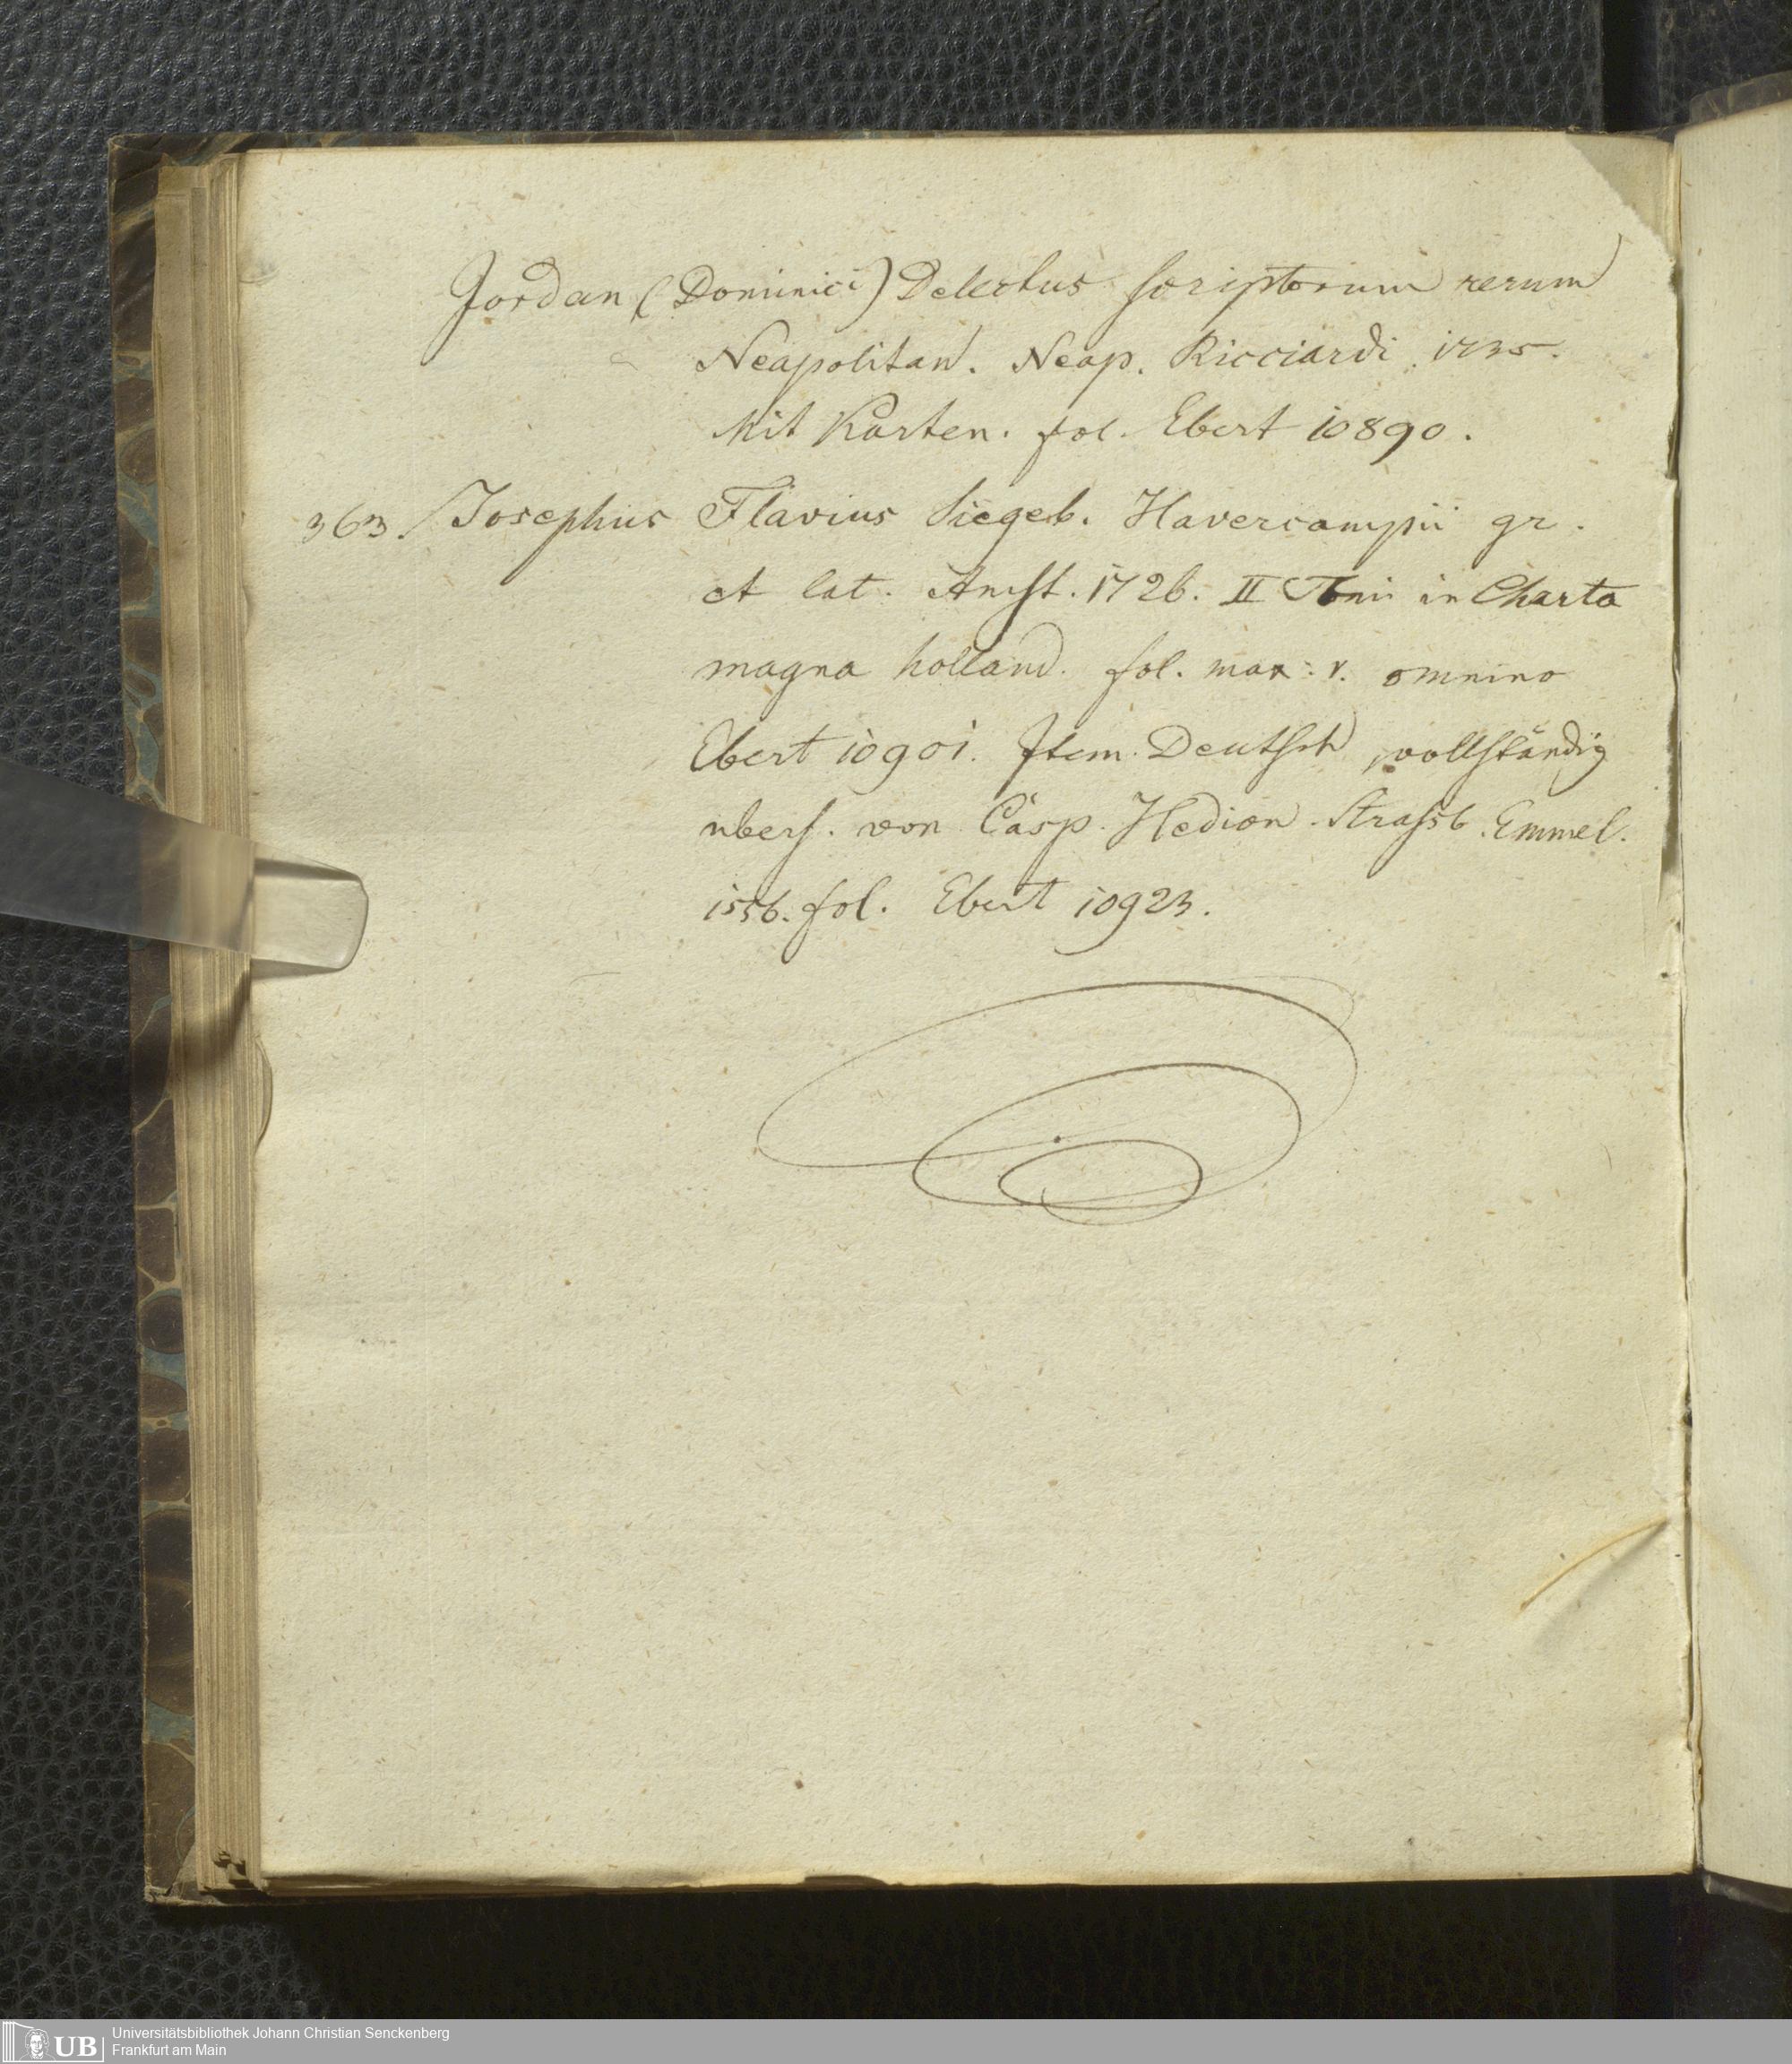 Jordan (Dominici) Delectus scriptorum rerum
Neapolitan. Neap. Ricciardi. 1735.
Mit Karten. fol. Ebert 10890.
363. Josephus Flavius Siegeb. Havercampii gr.
et lat. Amst. 1726. II Tomi in Charta
magna holland. fol. max: v. omnino
Ebert 10901. Item Deutsch vollständig
übers. von Casp. Hedion. Strassb. Emmel.
1556. fol. Ebert 10923.
UB Universitätsbibliothek Johann Christian Senckenberg
Frankfurt am Main